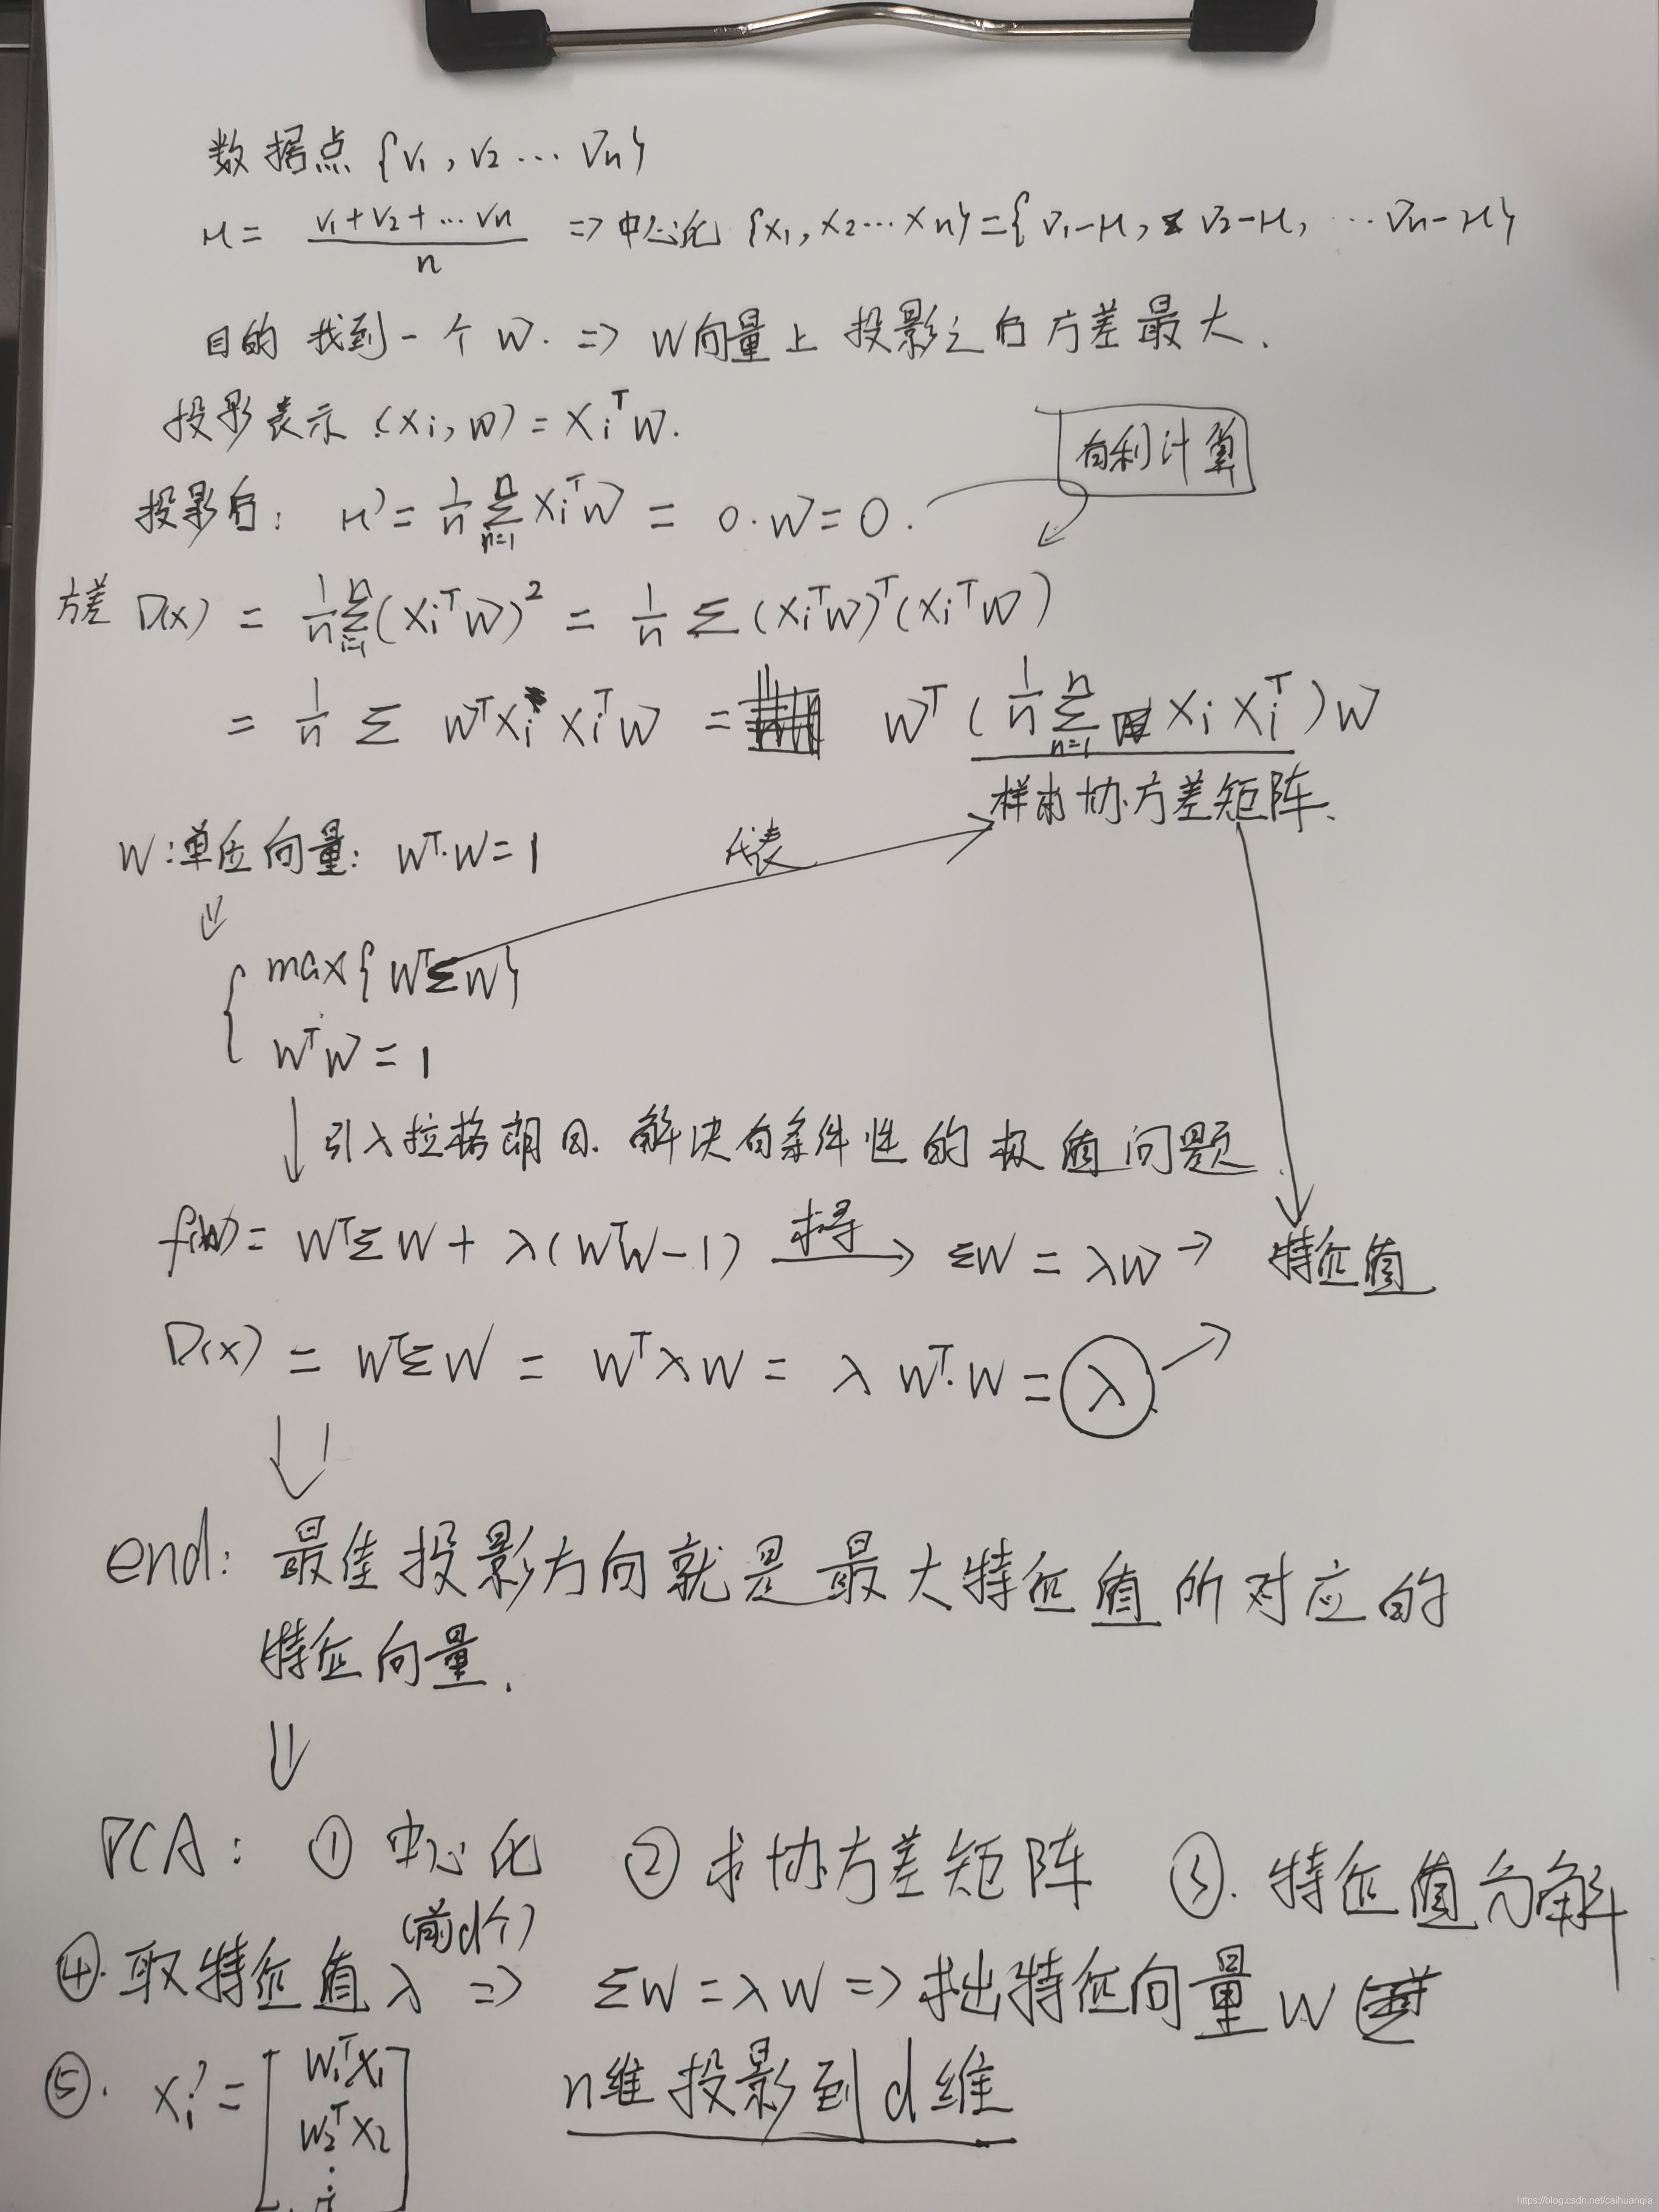 数据点 {v₁, v₂ … vn}
μ = (v₁+v₂+…vn)/n => 中心化 {x₁, x₂…xn} = {v₁-μ, v₂-μ, …vn-μ}
目的 找到一个 W. => W向量上投影之后方差最大.
投影表示 (xi, w) = xiᵀW.
有利计算
投影后: μ' = 1/n Σ(n=1→n) xiᵀW = 0·W = 0.
方差 D(x) = 1/n Σ(i=1→n) (xiᵀW)² = 1/n Σ (xiᵀW)ᵀ(xiᵀW)
= 1/n Σ Wᵀxi xiᵀW = Wᵀ (1/n Σ(n=1→n) xi xiᵀ) W
样本协方差矩阵.
W:单位向量: Wᵀ·W=1
代表
max{WᵀΣW}
WᵀW = 1
引入拉格朗日. 解决有条件性的极值问题.
f(w) = WᵀΣW + λ(WᵀW-1) 求导→ ΣW = λW → 特征值
D(x) = WᵀΣW = WᵀλW = λWᵀ·W = λ
end: 最佳投影方向就是最大特征值所对应的
特征向量.
PCA: ① 中心化 ② 求协方差矩阵 ③. 特征值分解
(前d个)
④. 取特征值 λ => ΣW = λW => 求出特征向量 W
⑤. xi' = [W₁ᵀx₁
W₂ᵀx₂
⋮
n维投影到d维
https://blog.csdn.net/caihuanqia